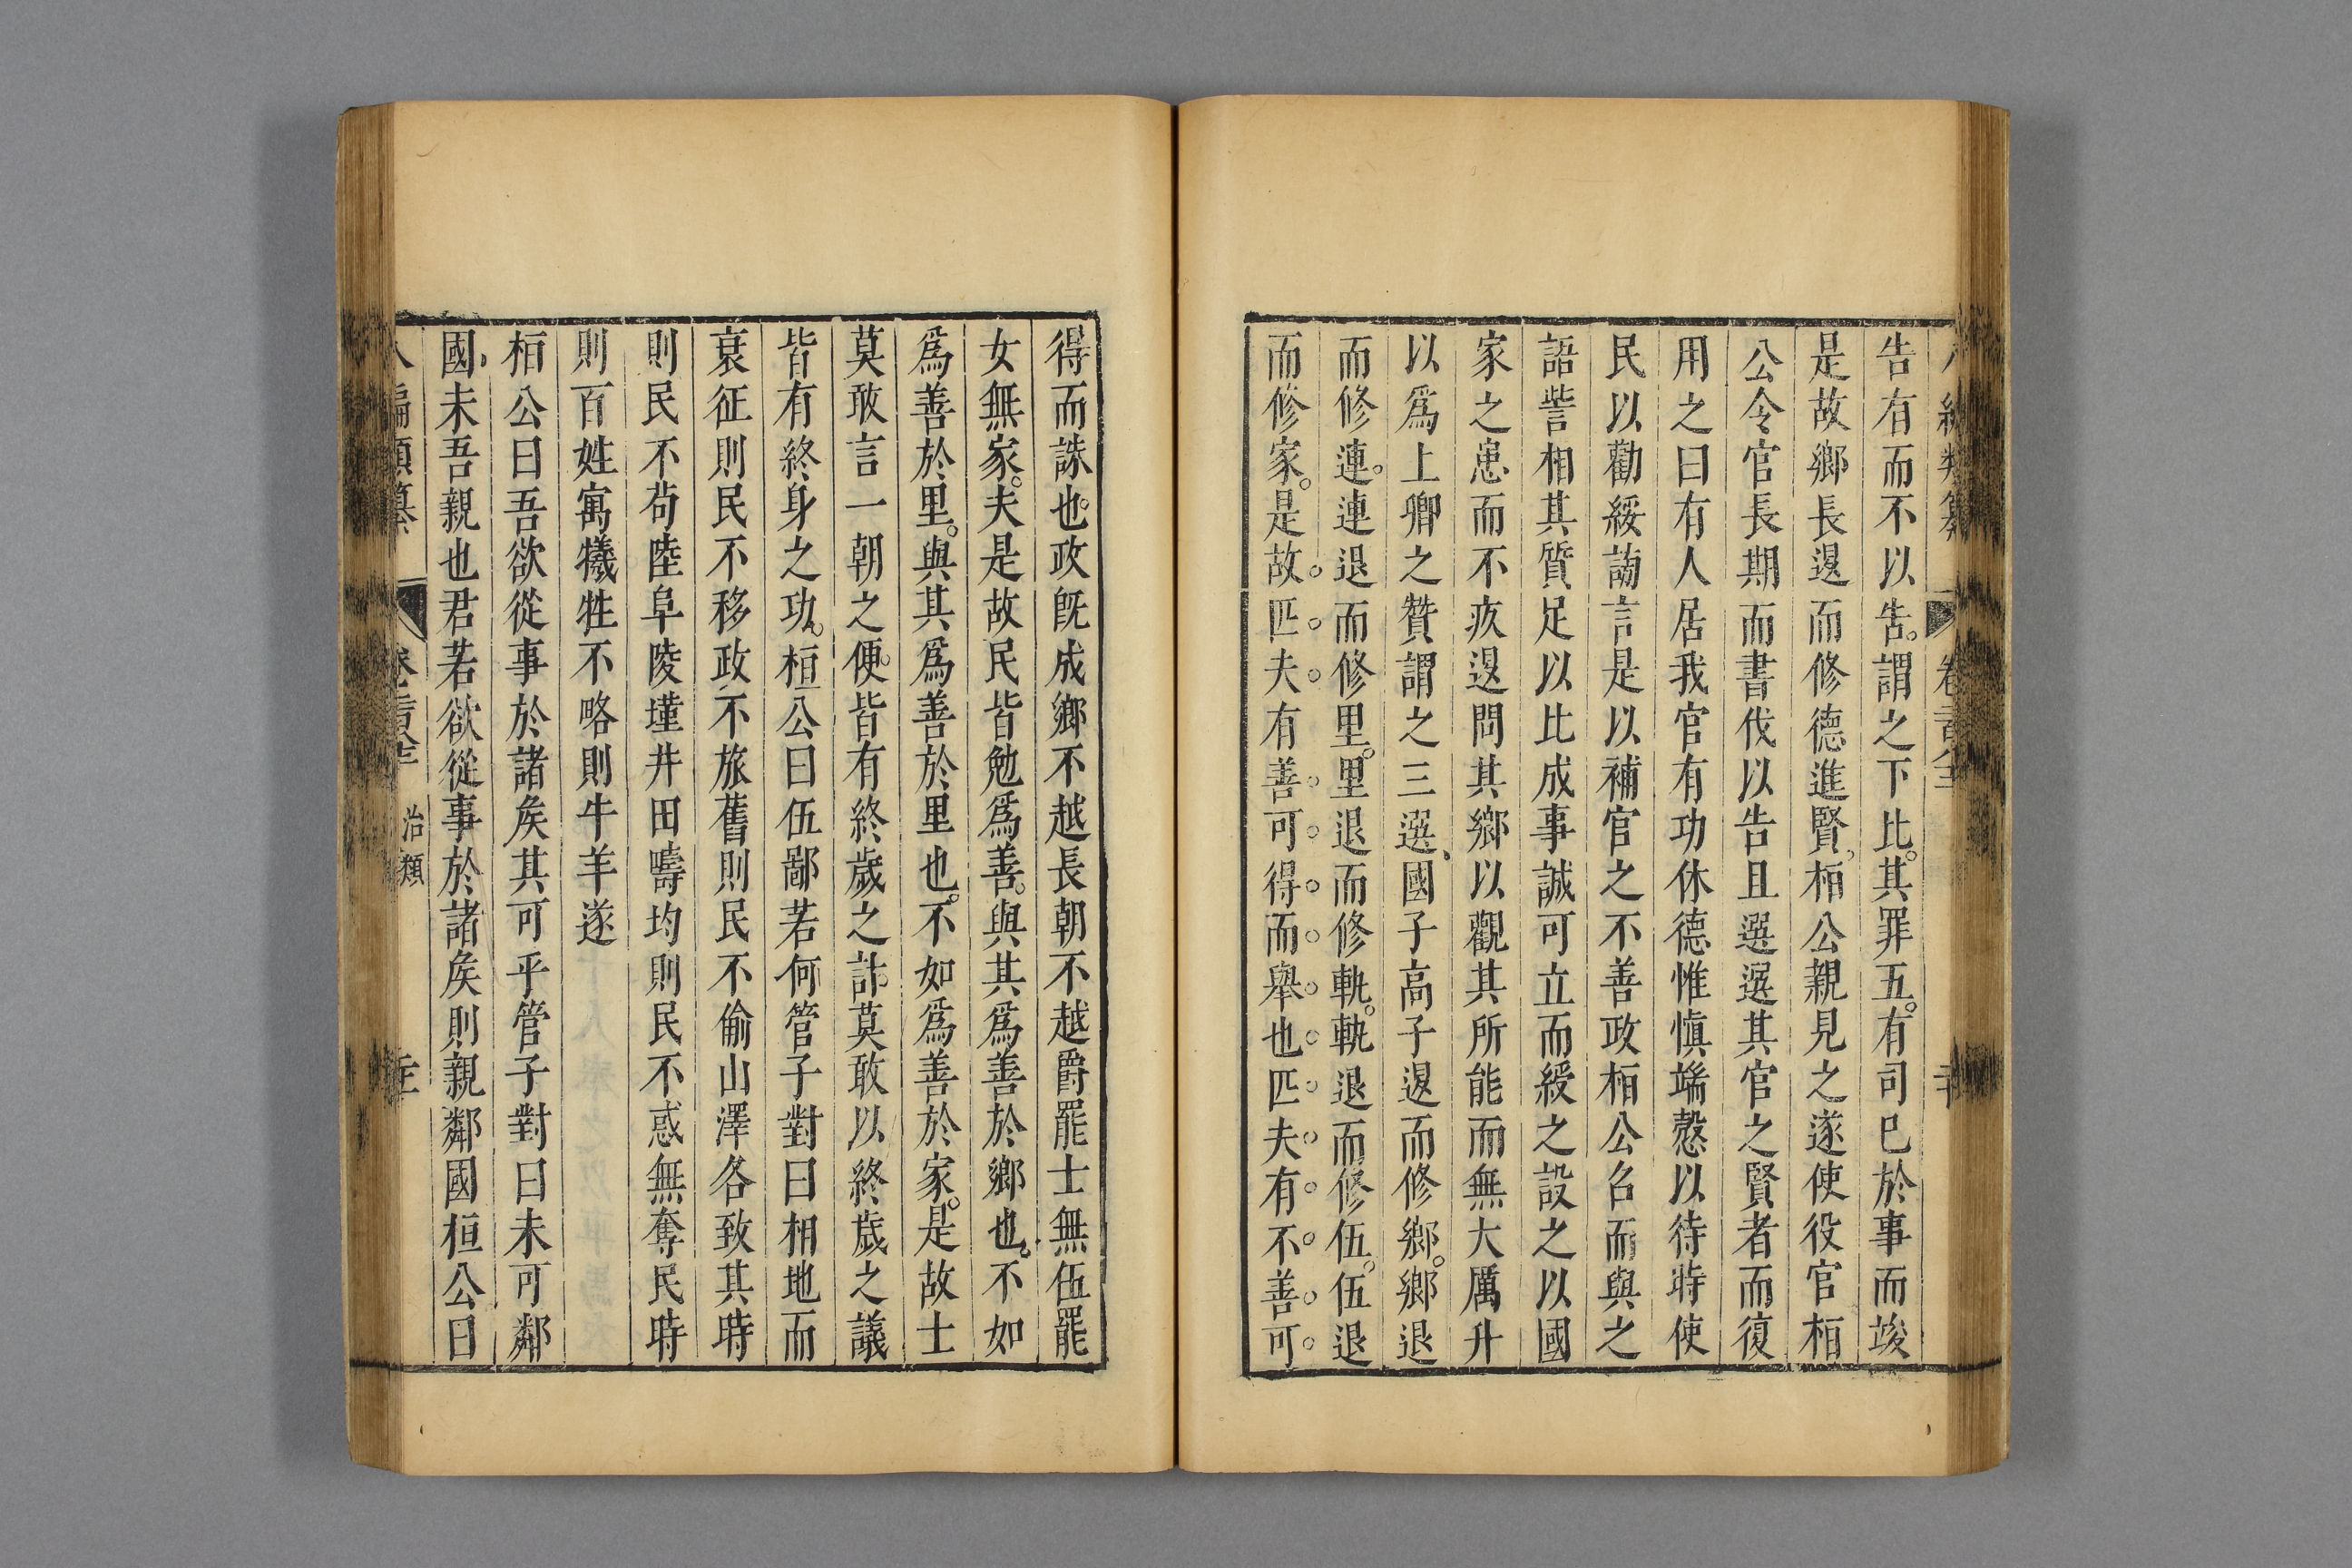 告有而不以告。謂之下比。其罪五。有司已於事而竣
是故鄉長退而修德進賢。桓公親見之遂使役官桓
公令官長期而書伐以告且選選其官之賢者而復
用之曰有人居我官有功休德惟愼端愨以待時使
民以勸綏謗言是以補官之不善政桓公召而與之
語訾相其質足以比成事誠可立而綬之設之以國
家之患而不疚退問其鄉以觀其所能而無大厲升
以爲上卿之贊謂之三選、國子高子退而修鄉。鄉退
而修連。連退而修里。里退而修軌。軌退而修伍。伍退
而修家。是故匹夫有善可得而舉也匹夫有不善可
得而誅也。政旣成鄉不越長朝不越爵罷士無伍罷
女無家。夫是故民皆勉爲善。與其爲善於鄉也。不如
爲善於里。與其爲善於里也。不如爲善於家。是故士
莫敢言一朝之便。皆有終歲之計莫敢以終歲之議
皆有終身之功。桓公曰伍鄙若何管子對曰相地而
衰征則民不移政不旅舊則民不偷山澤各致其時
則民不苟陸阜陵墐井田疇均則民不惑無奪民時
則百姓寓犧牲不略則牛羊遂
桓公曰吾欲從事於諸矦其可乎管子對曰未可鄰
國未吾親也君若欲從事於諸矦則親鄰國桓公曰
八編類纂 治類